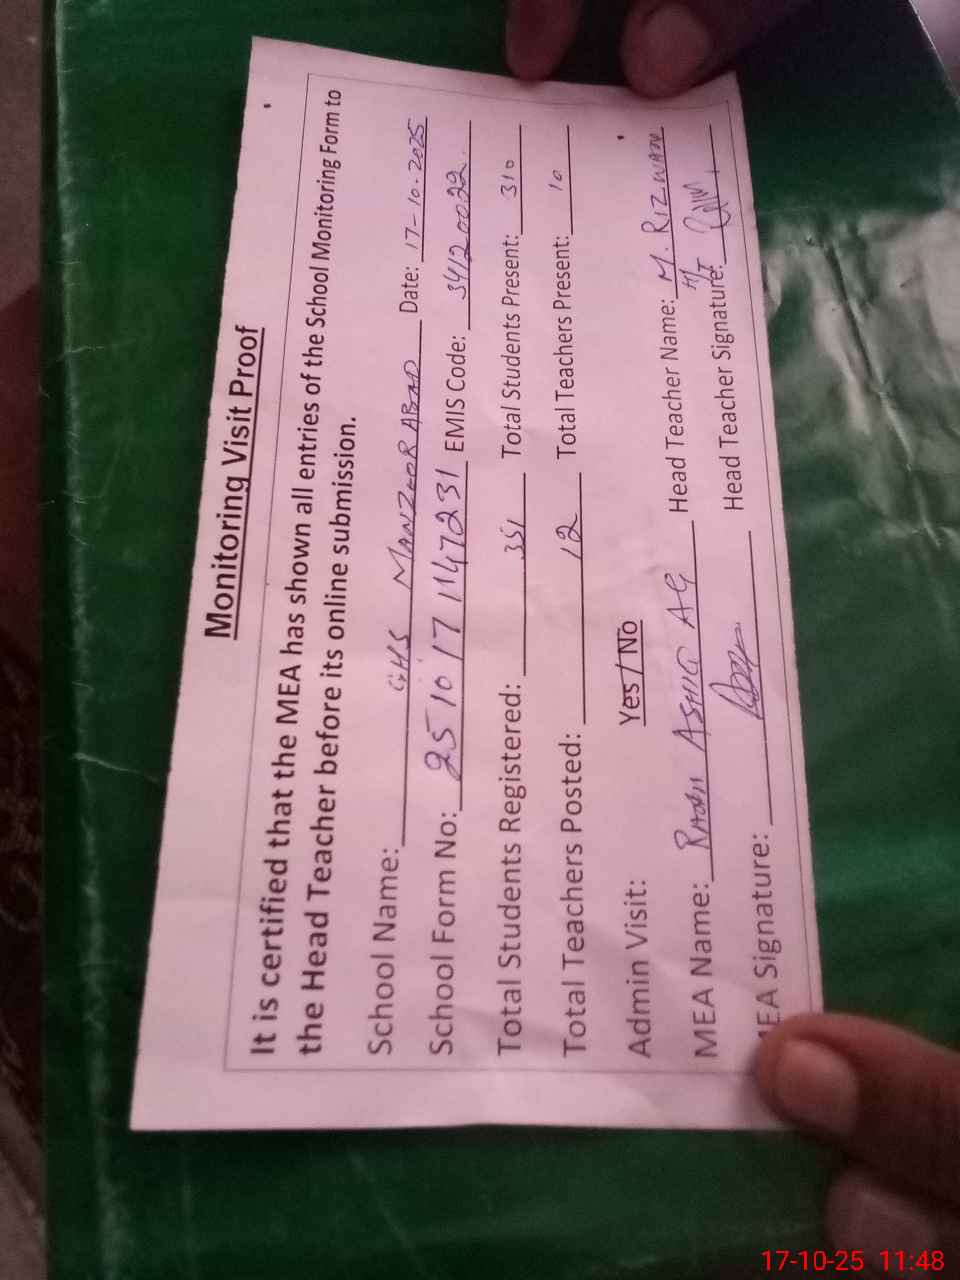 Monitoring Visit Proof
It is certified that the MEA has shown all entries of the School Monitoring Form to
the Head Teacher before its online submission.
School Name: GHS MANZOOR ABAD Date: 17-10-2025
School Form No: 2510171147231 EMIS Code: 34120022
Total Students Registered: 351 Total Students Present: 310
Total Teachers Posted: 12 Total Teachers Present: 10
Admin Visit: Yes / No
MEA Name: ASHIQ Head Teacher Name: M. RIZWAN
H/T
MEA Signature: Head Teacher Signature:
17-10-25 11:48